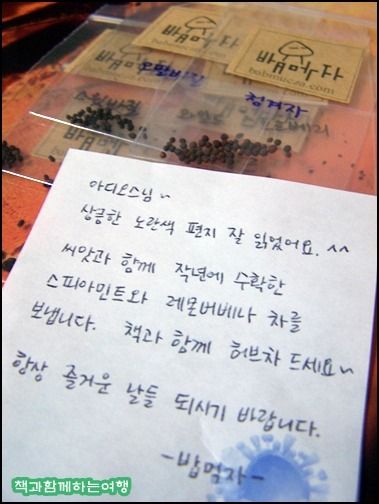 밥먹자
밥먹자
bobmucza.com
오팔바질
청겨자
밥먹자
아디오스님~
상큼한 노란색 편지 잘 읽었어요. ^^
씨앗과 함께 작년에 수확한
스피아민트와 레몬버베나 차를
보냅니다. 책과 함께 허브차 드세요~
항상 즐거운 날들 되시기 바랍니다.
-밥먹자-
책과함께하는여행